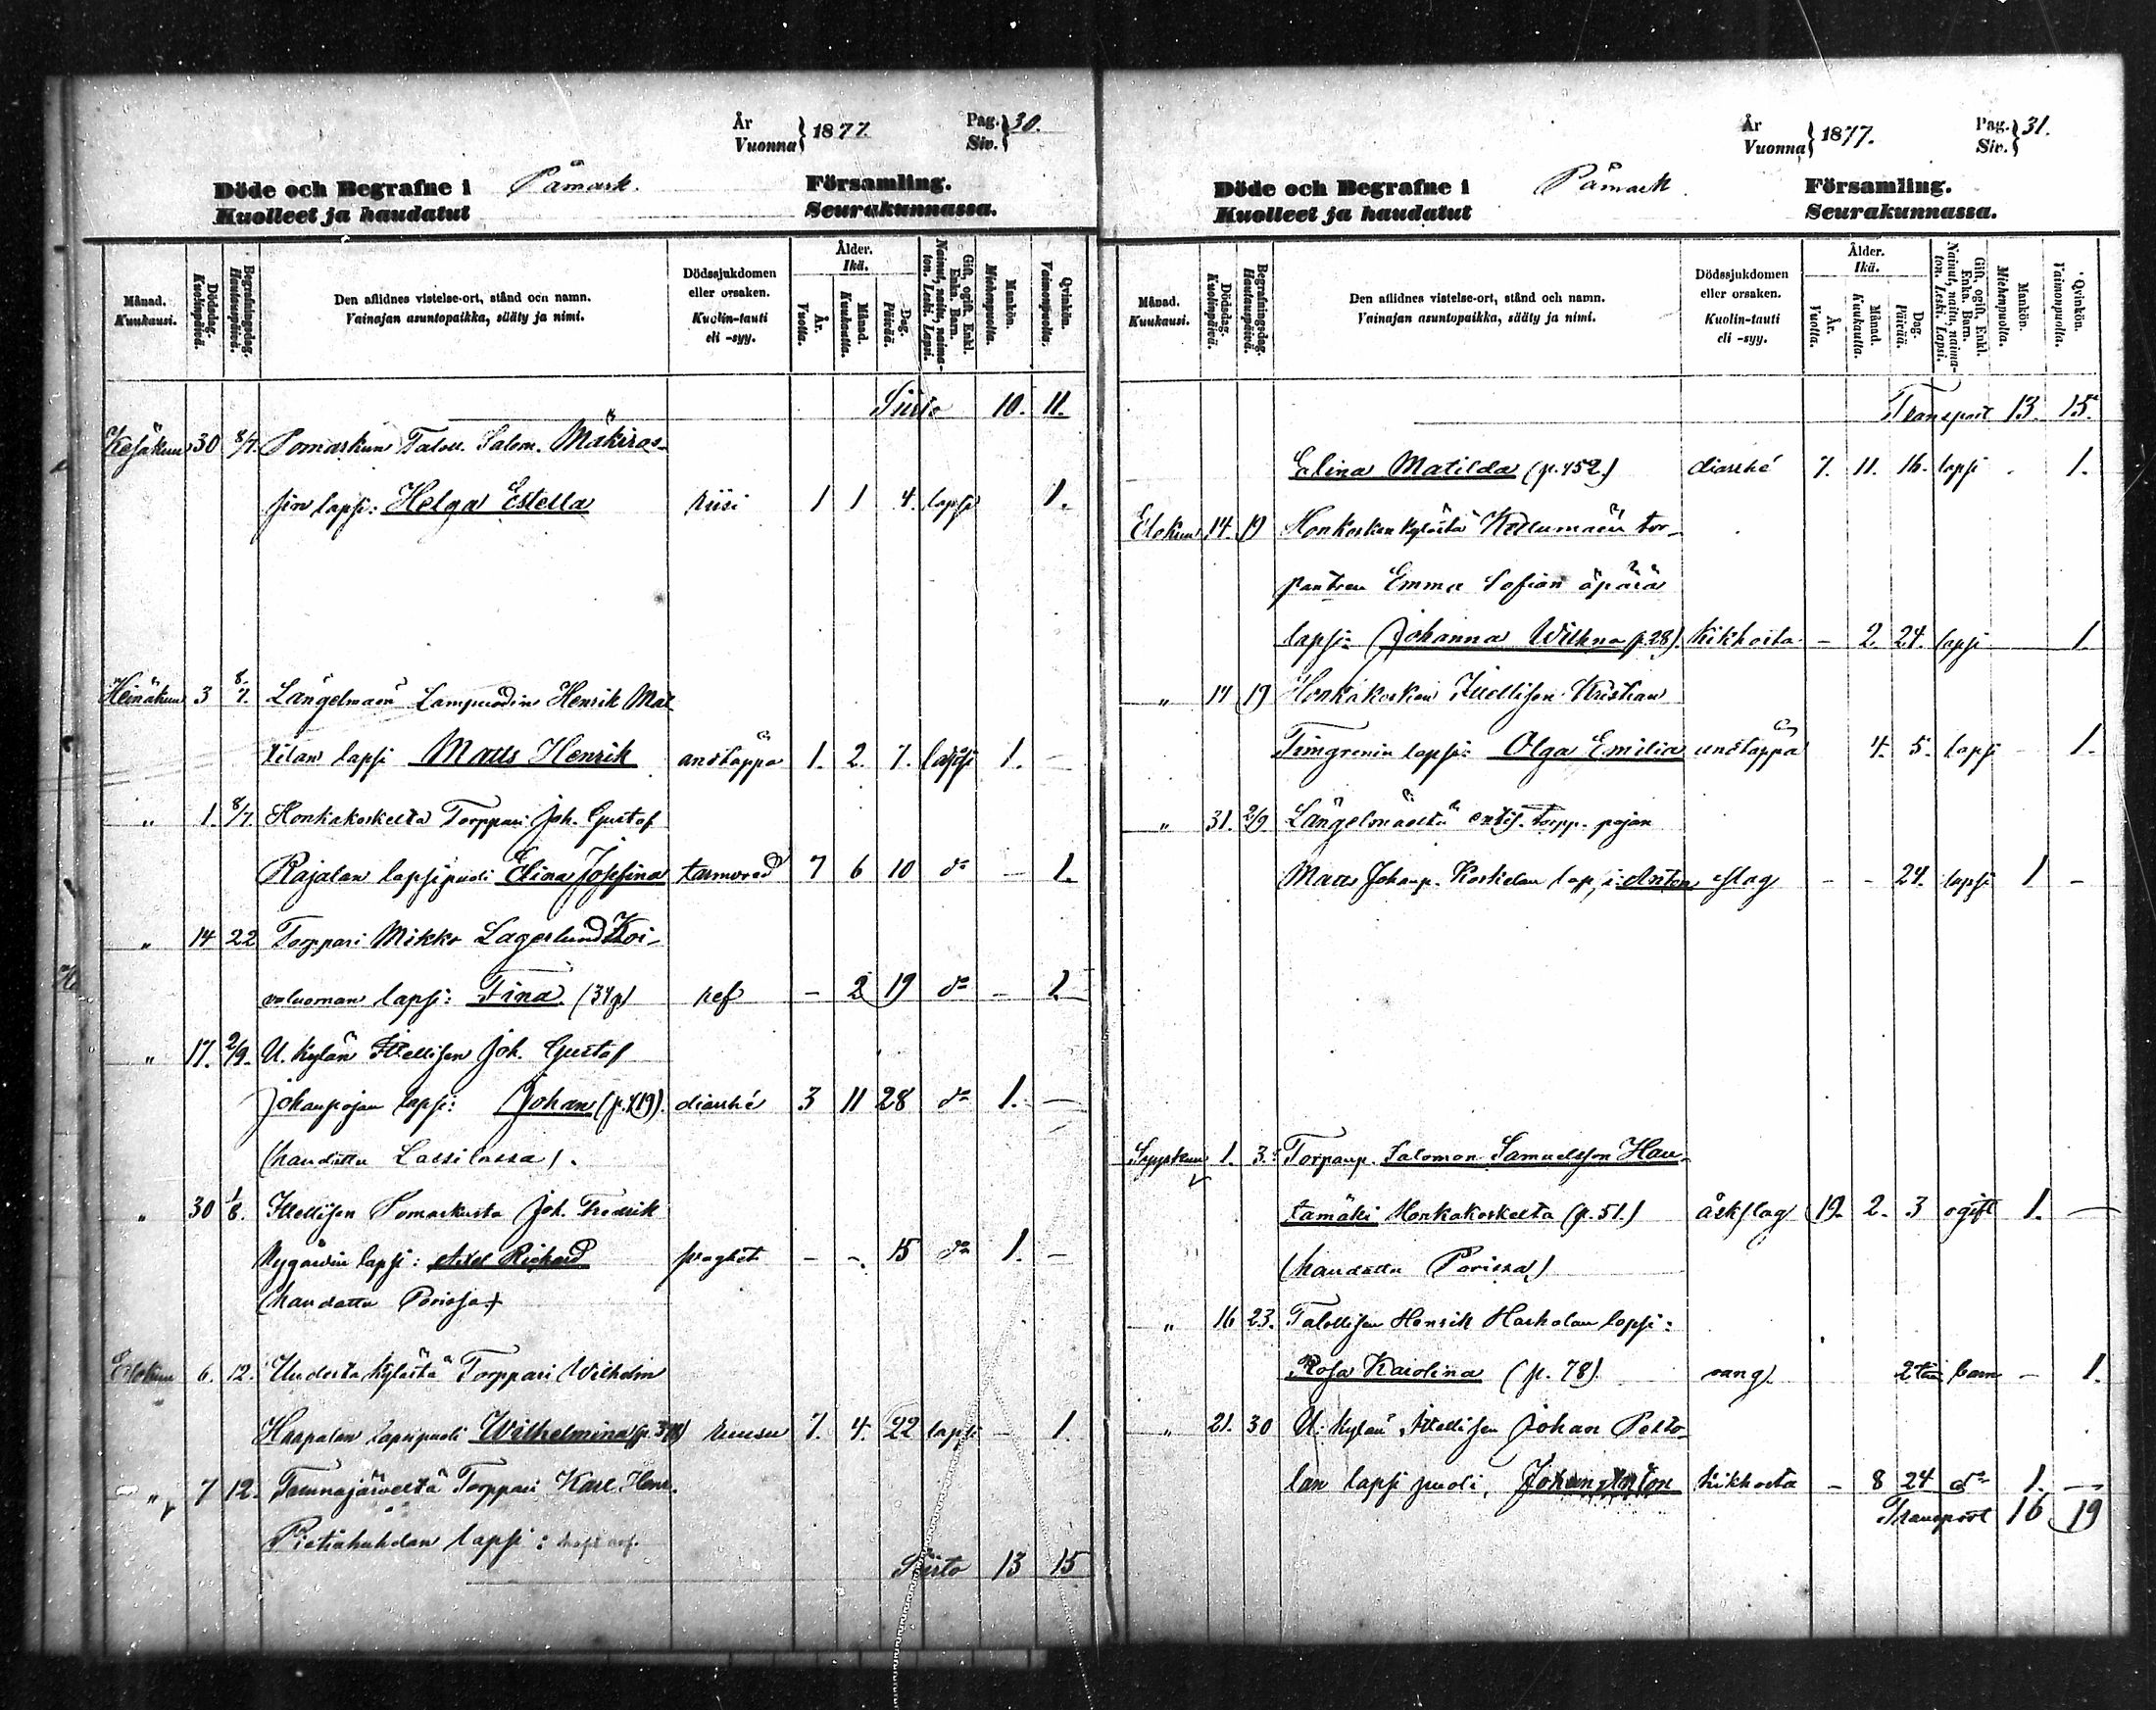 År
Vuonna } 1877.
Pag.
Siv. } 30.
Döde och Begrafne i Påmark. Församling.
Kuolleet ja haudatut Seurakunnassa.
Månad. Kuukausi.
Dödsdag. Kuolinpäivä.
Begrafningsdag. Hautauspäivä.
Den aflidnes vistelse-ort, stånd och namn.
Vainajan asuntopaikka, sääty ja nimi.
Dödssjukdomen eller orsaken.
Kuolin-tauti eli -syy.
Ålder. Ikä.
År. Vuotta.
Månad. Kuukautta.
Dag. Päivää.
Gift, ogift, Enkl. Enka. Barn.
Nainut, naitu, naimaton. Leski. Lapsi.
Mankön. Miehenpuolia.
Qvinkön. Vaimonpuolia.
Siirto 10. 11.
Kesäkuu 30 8/7. Pomarkun Taloll. Salom. Mäkiras-
sin lapsi: Helga Estella riisi 1 1 4. lapsi 1.
Heinäkuu 3 8/7. Längelmaen Lampuodin Henrik Mat
tilan lapsi Matts Henrik andtäppa 1. 2. 7. lapsi 1. —
" 1. 8/7. Honkakoskelta Torppari Joh. Gustaf
Rajalan lapsipuoli Elina Josefina tarmvred 7 6 10 d:o — 1.
" 14 22 Torppari Mikko Lagerlund Koi-
valuoman lapsi: Fina (34) kef — 2 19 d:o — 1.
" 17. 2/9. U. kylän Itellisen Joh. Gustaf
Johanpojan lapsi: Johan (p. 419). diarrhé 3 11 28 d:o 1. —
(haudattu Lassilassa).
" 30 1/8. Itellisen Pomarkusta Joh. Fredrik
Nygårdin lapsi: Axel Richard — — 15 d:o 1. —
(haudattu Porissa)
Elokuu 6. 12. Uudesta kylästä Torppari Wilhelm
Haapalan lapsipuoli Wilhelmina ruusu 7. 4. 22 lapsi — 1.
" 7 12. Torppari Karl Henr.
Pietinhuhdan lapsi:
Siirto 13 15
År
Vuonna } 1877.
Pag.
Siv. } 31.
Döde och Begrafne i Påmark. Församling.
Kuolleet ja haudatut Seurakunnassa.
Månad. Kuukausi.
Dödsdag. Kuolinpäivä.
Begrafningsdag. Hautauspäivä.
Den aflidnes vistelse-ort, stånd och namn.
Vainajan asuntopaikka, sääty ja nimi.
Dödssjukdomen eller orsaken.
Kuolin-tauti eli -syy.
Ålder. Ikä.
År. Vuotta.
Månad. Kuukautta.
Dag. Päivää.
Gift, ogift, Enkl. Enka. Barn.
Nainut, naitu, naimaton. Leski. Lapsi.
Mankön. Miehenpuolia.
Qvinkön. Vaimonpuolia.
Transport 13. 15.
Elina Matilda (p. 452.) diarrhé 7. 11. 16. lapsi . 1.
Elokuu 14. 19 Honkosken kylästä tor-
Emma Sofian äpärä
lapsi: Johanna (p. 28). kikhosta — 2. 24. lapsi 1.
" 14 19 Honkakosken Itellisen Kristian
lapsi: Olga Emilia andtäppa 4. 5. lapsi — 1.
" 31. 2/9 Längelmäeltä entis. torpp. pojan
Matts Johanp. Koskelan lapsi: Anton slag — — 24. lapsi 1 —
Syyskuu 1. 3. Torpanp. Salomon Samuelsson Hau-
tamäki Honkakoskelta (p. 51.) åskslag 19. 2. 3 ogift 1. —
(haudattu Porissa)
" 16 23. Talollisen Henrik Harholan lapsi:
Rosa Karolina (p. 78). 2 barn — 1.
" 21. 30 U. kylän Itellisen Johan Pelto-
lan lapsi puoli, Johan Anton kikhosta — 8 24 d:o 1. —
Transport 16 19